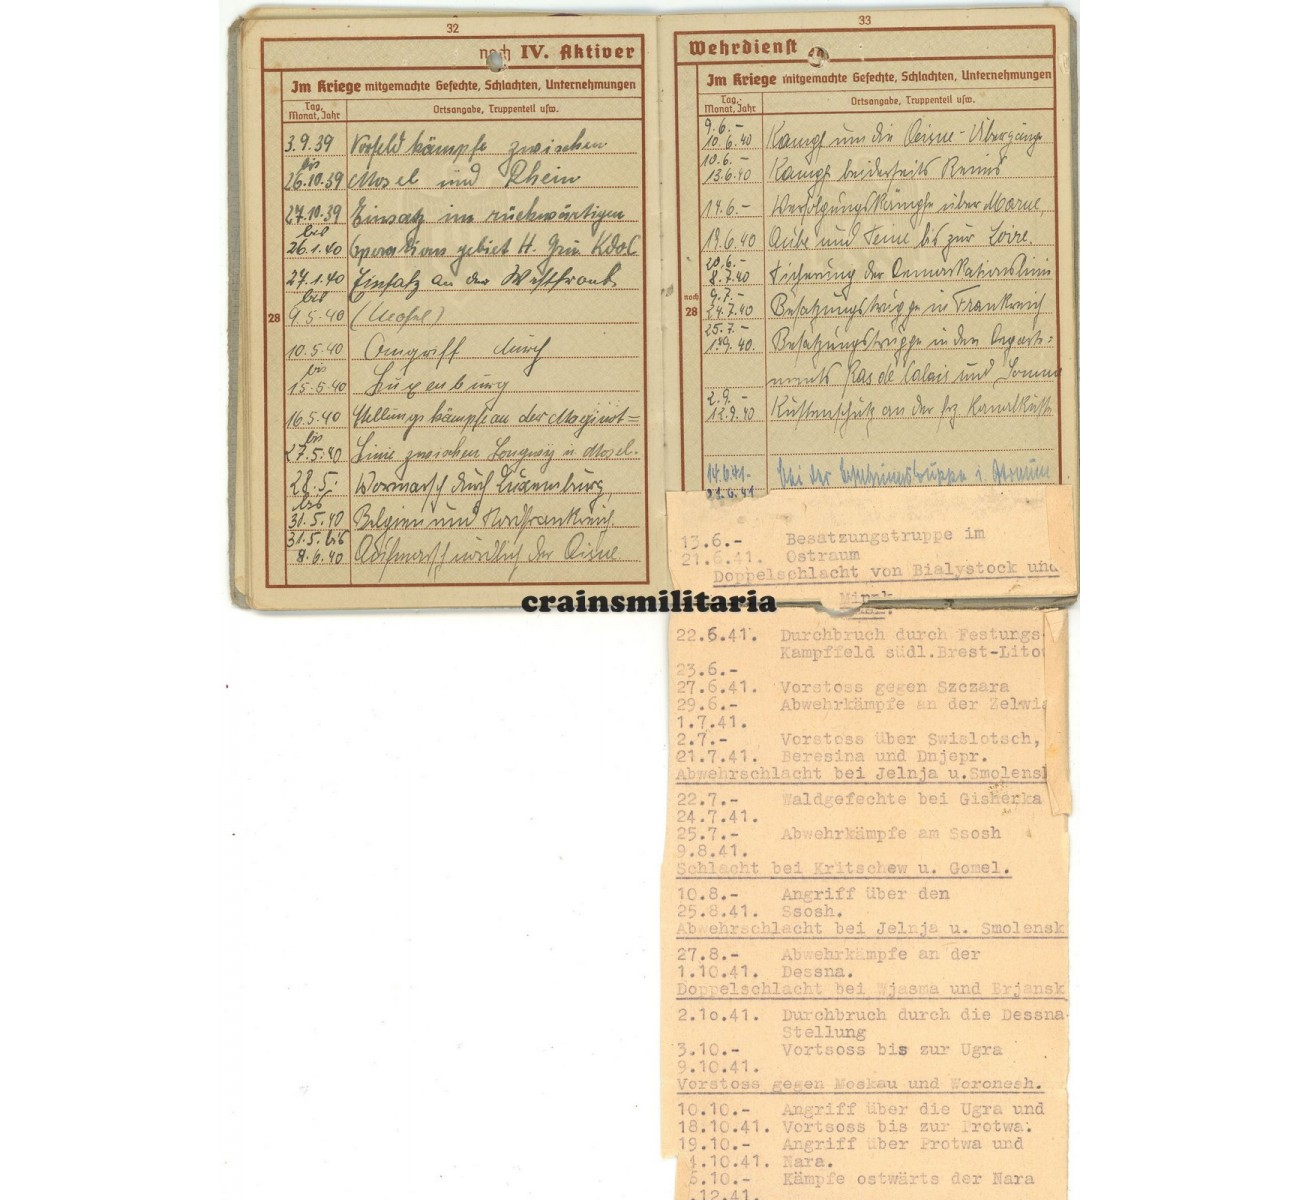 32
noch IV. Aktiver
Im Kriege mitgemachte Gefechte, Schlachten, Unternehmungen
Tag, Monat, Jahr
Ortsangabe, Truppenteil usw.
28
3.9.39 Vorfeldkämpfe zwischen
bis
26.10.39 Mosel und Rhein
27.10.39 Einsatz im rückwärtigen
bis
26.1.40 Operationsgebiet H. Gru.
27.1.40 Einsatz an der Westfront
bis
9.5.40 (Mosel)
10.5.40 Angriff durch
bis
15.5.40 Luxenburg
16.5.40 Stellungskämpfe an der Maginot=
bis
27.5.40 Linie zwischen Longwy u. Mosel.
28.5. Vormarsch durch Luxemburg,
bis
31.5.40 Belgien und Nordfrankreich
31.5. bis
8.6.40 Aufmarsch nördlich der Aisne
33
Wehrdienst
Im Kriege mitgemachte Gefechte, Schlachten, Unternehmungen
Tag, Monat, Jahr
Ortsangabe, Truppenteil usw.
noch
28
9.6.-
10.6.40 Kampf um die Aisne-Übergänge
10.6.-
13.6.40 Kampf beiderseits Reims
14.6.- Verfolgungskämpfe über Marne,
19.6.40 Aube und Seine bis zur Loire.
20.6.-
8.7.40 Sicherung der Demarkationslinie
9.7.-
24.7.40 Besatzungstruppe in Frankreich
25.7.-
1.9.40. Besatzungstruppe in den Departe=
ments Pas de Calais und Somme
2.9.-
12.9.40 Küstenschutz an der frz. Kanalküste
14.6.41- Bei der Besatzungstruppe i. Ostraum
21.6.41
13.6.- Besatzungstruppe im
21.6.41. Ostraum
Doppelschlacht von Bialystock und
Minsk.
crainsmilitaria
22.6.41. Durchbruch durch Festungs-
Kampffeld südl.Brest-Lito
23.6.-
27.6.41. Vorstoss gegen Szczara
29.6.- Abwehrkämpfe an der Zelwi
1.7.41.
2.7.- Vorstoss über Swislotsch,
21.7.41. Beresina und Dnjepr.
Abwehrschlacht bei Jelnja u.Smolensk
22.7.- Waldgefechte bei
24.7.41.
25.7.- Abwehrkämpfe am Ssosh
9.8.41.
Schlacht bei Kritschew u. Gomel.
10.8.- Angriff über den
25.8.41. Ssosh.
Abwehrschlacht bei Jelnja u. Smolensk
27.8.- Abwehrkämpfe an der
1.10.41. Dessna.
Doppelschlacht bei Wjasma und Brjansk
2.10.41. Durchbruch durch die Dessna-
Stellung
3.10.- Vortsoss bis zur Ugra
9.10.41.
Vorstoss gegen Moskau und Woronesh.
10.10.- Angriff über die Ugra und
18.10.41. Vortsoss bis zur Protwa.
19.10.- Angriff über Protwa und
.10.41. Nara.
.10.- Kämpfe ostwärts der Nara
.12.41.